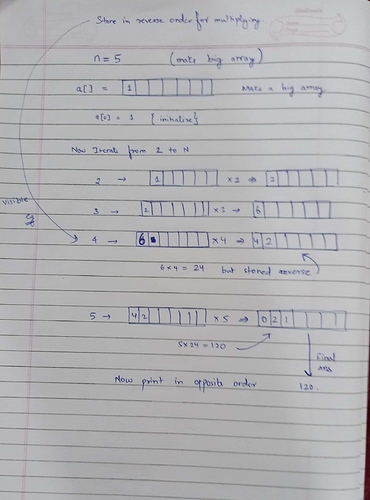 Store in reverse order for multiplying
n = 5 (make big array)
a[] = 1 Make a big array
a[0] = 1 {initialise}
Now Iterate from 2 to N
2 → 1 × 2 ⇒ 2
3 → 2 × 3 → 6
visible
4 → 6 × 4 ⇒ 4 2
6 x 4 = 24 but stored reverse
5 → 4 2 × 5 ⇒ 0 2 1
5 x 24 = 120
final
ans
Now print in opposite order 120.